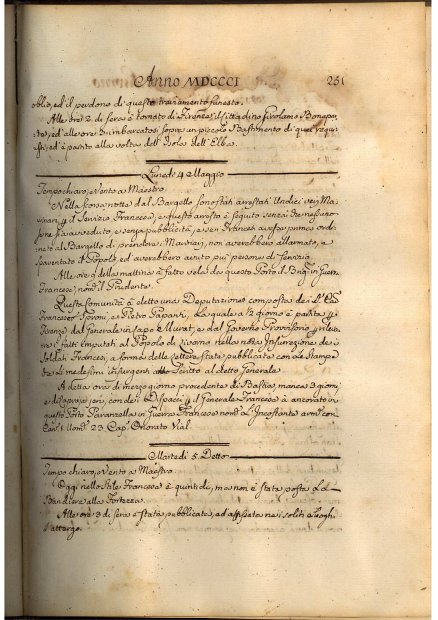 Anno MDCCCI 251
oblio, ed il perdono di questo traviamento funesto.
Alle ore 2 di sera è tornato di Firenze il Cittadino Girolamo Bonapar-
te, ed alle ore 3 imbarcatosi sopra un piccolo Bastimento di quei requi-
siti, ed è partito alla volta dell'Isola dell'Elba.
Lunedì 4 Maggio
Tempo chiaro, Vento a Maestro.
Nella scorsa notte dal Bargello sono stati arrestati Undici
Servizio Francese, e questo arresto è seguito senza che nessuno
se ne sia avveduto, e senza pubblicità, e se i Francesi avesse prima ordi-
nato al Bargello di prendere i non averebbero allarmato, e
spaventato il Popolo ed averebbero avuto più persone di servizio.
Alle ore 9 della mattina à fatto vela da questo Porto il Brig. in Guerra
Francese, nom.º il Prudente.
Questa Comunità à eletto una Deputazione composta dei
Francesco e Pietro Paparti, la quale a ½ giorno è partita p
Firenze dal Generale in Capo Murat, e dal Governo Provvisorio
i fatti imputati al Popolo di Livorno nella nota Insurrezione dei
Soldati Francesi, a forma delle lettere state pubblicate con le Stampe
Scritto al detto Generale.
A detta ora di mezzo giorno procedente di Bastia, manca 3 giorni,
e con dei Dispacci p il Generale Francese à ancorato in
questo Porto Paranzella in Guerra Francese nom.ª L'Incostante arm. con
Can.º 1 Uom. 23 Cap. Onorato Vial.
Martedì 5 Detto
Tempo chiaro, e Vento a Maestro.
Oggi nello stile Francese è quintidì, ma non è stata posta La
Bandiera alla Fortezza.
Alle ore 3 di sera è stata pubblicata, ed affissata nei soliti Luoghi
l'attergo.